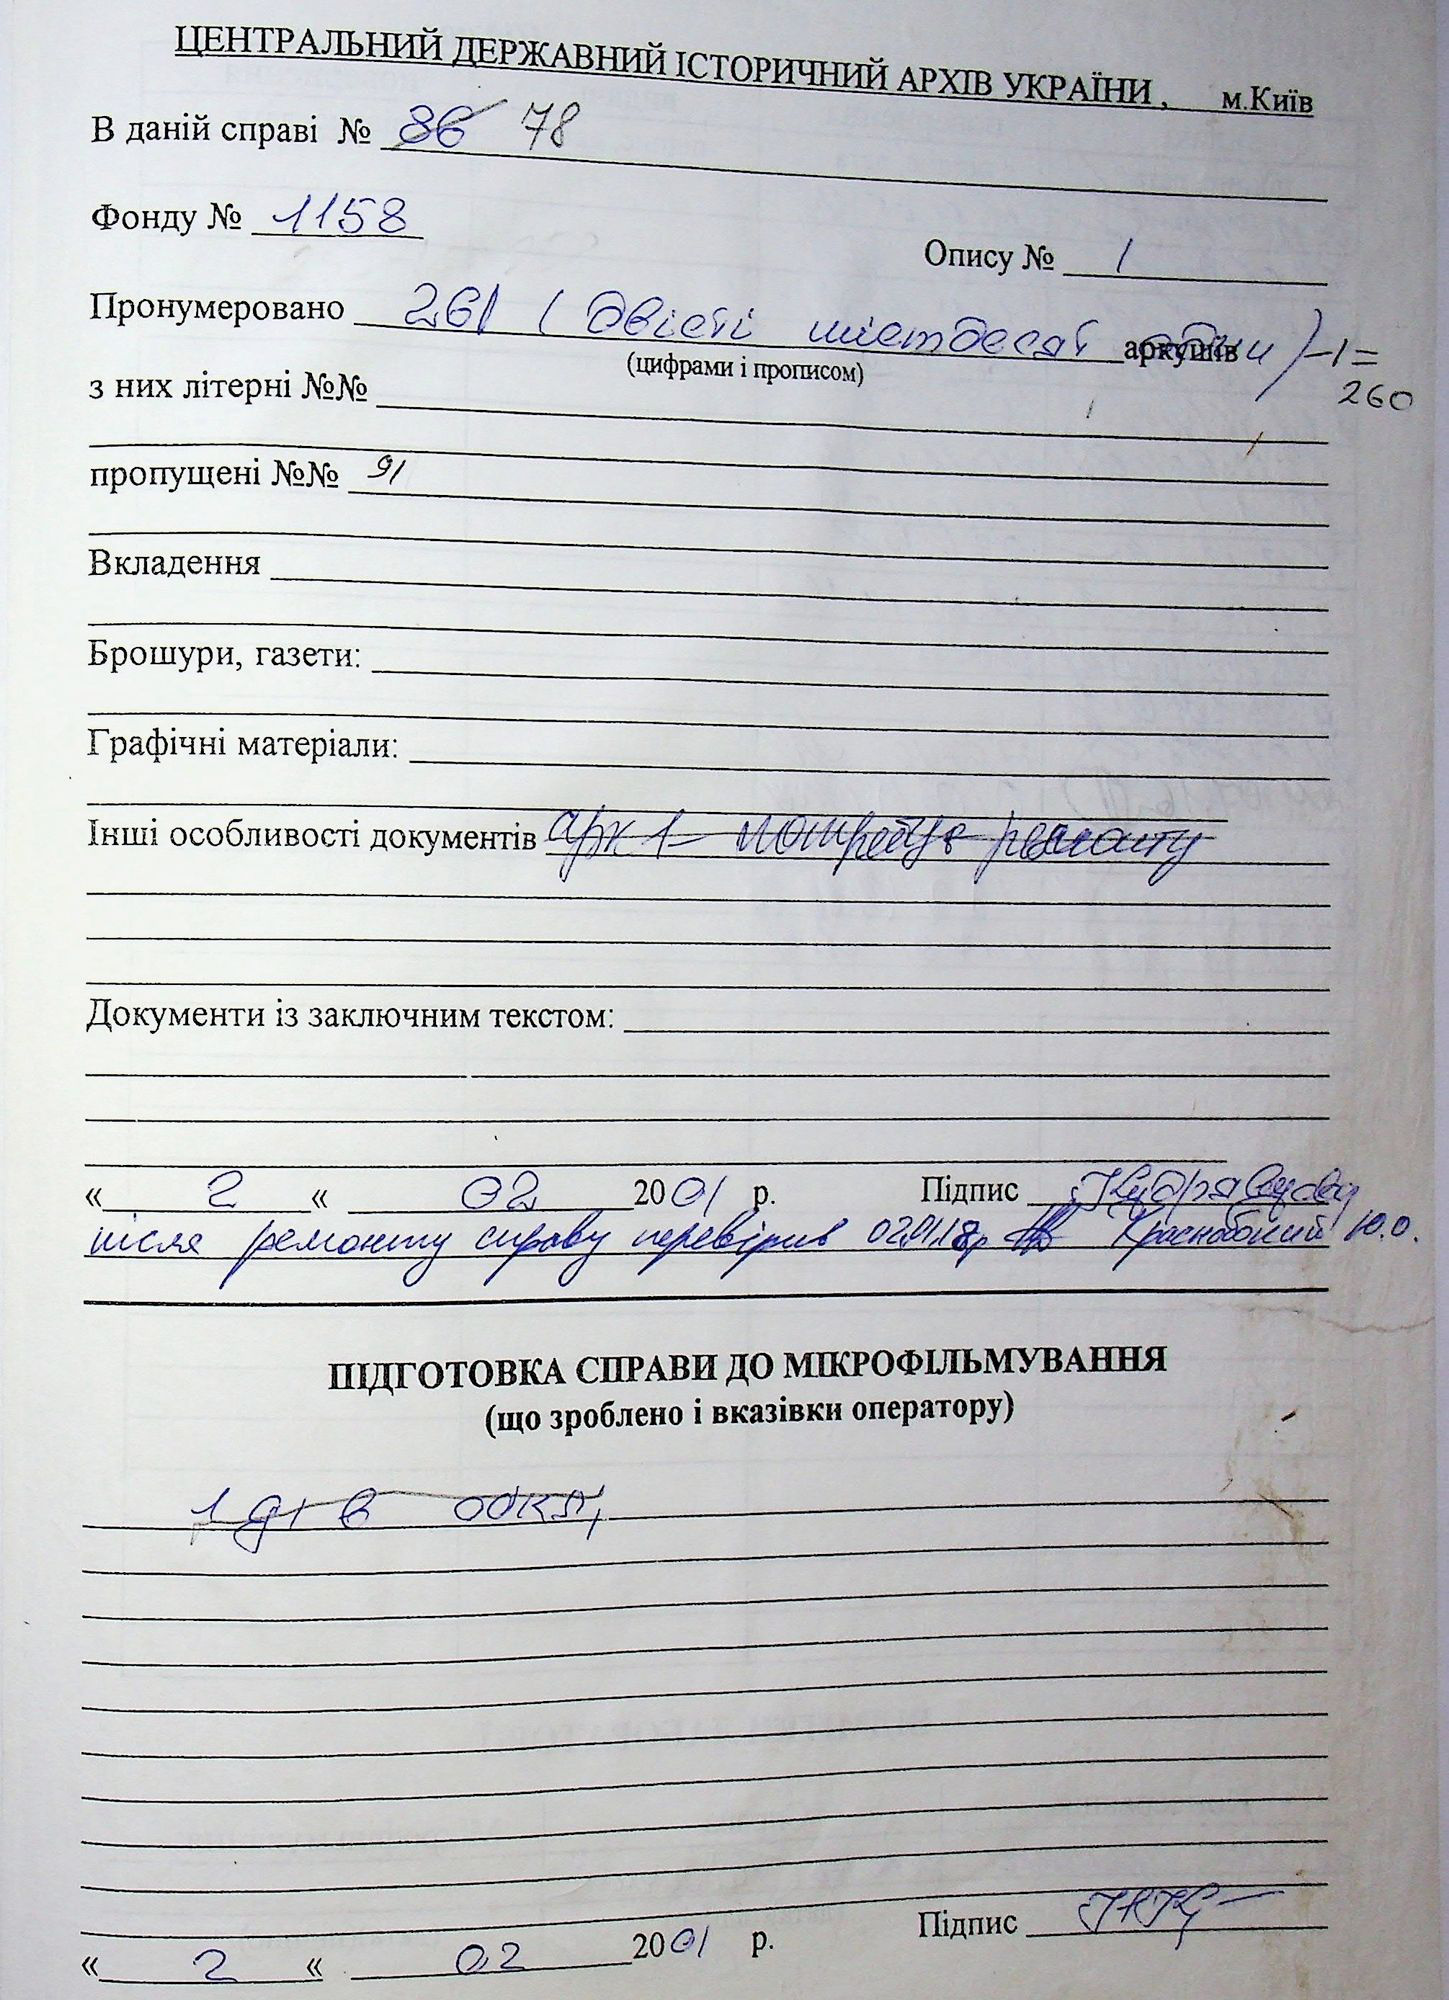 ЦЕНТРАЛЬНИЙ ДЕРЖАВНИЙ ІСТОРИЧНИЙ АРХІВ УКРАЇНИ, м.Київ
В даній справі № 86 78
Фонду № 1158
Опису № 1
Пронумеровано 261 (двісті шістдесят один) аркушів -1=
260
(цифрами і прописом)
з них літерні №№
пропущені №№ 91
Вкладення
Брошури, газети:
Графічні матеріали:
Інші особливості документів арк 1 - потребує ремонту
Документи із заключним текстом:
« 2 « 02 2001 р. Підпис
після ремонту справу перевірив 02.01.18р Краснобокий Ю.О.
ПІДГОТОВКА СПРАВИ ДО МІКРОФІЛЬМУВАННЯ
(що зроблено і вказівки оператору)
1 в
« 2 « 02 2001 р. Підпис